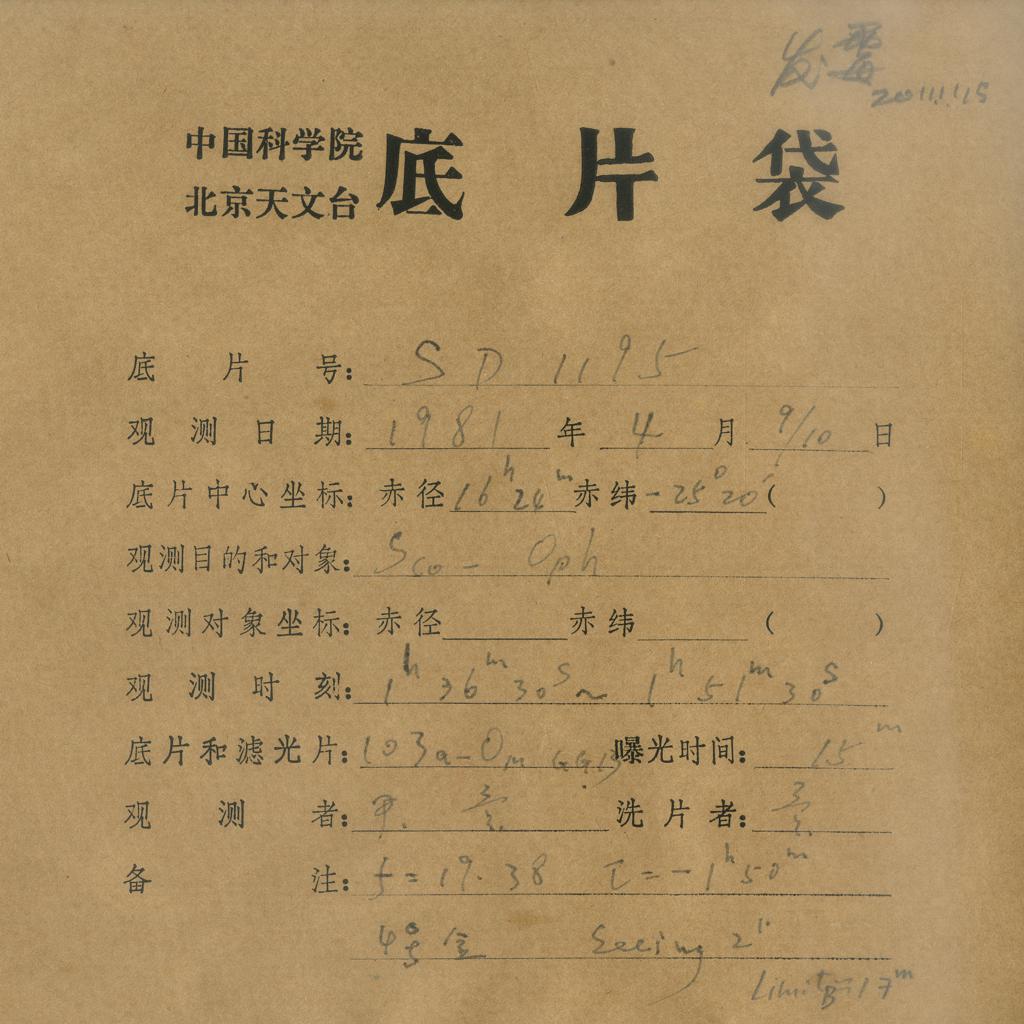 发霉
2011.1.15
中国科学院
北京天文台
底片袋
底片号: SD 1195
观测日期: 1981 年 4 月 9/10 日
底片中心坐标: 赤径 16h 24m 赤纬 -25°20′ ( )
观测目的和对象: Sco - Oph
观测对象坐标: 赤径 赤纬 ( )
观测时刻: 1h 36m 30s ~ 1h 51m 30s
底片和滤光片: 103a-O GG13 曝光时间: 15m
观测者: 洗片者:
备注: f = 19.38 τ = -1h 50m
4号盒 Seeing 2″
Limit B=17m